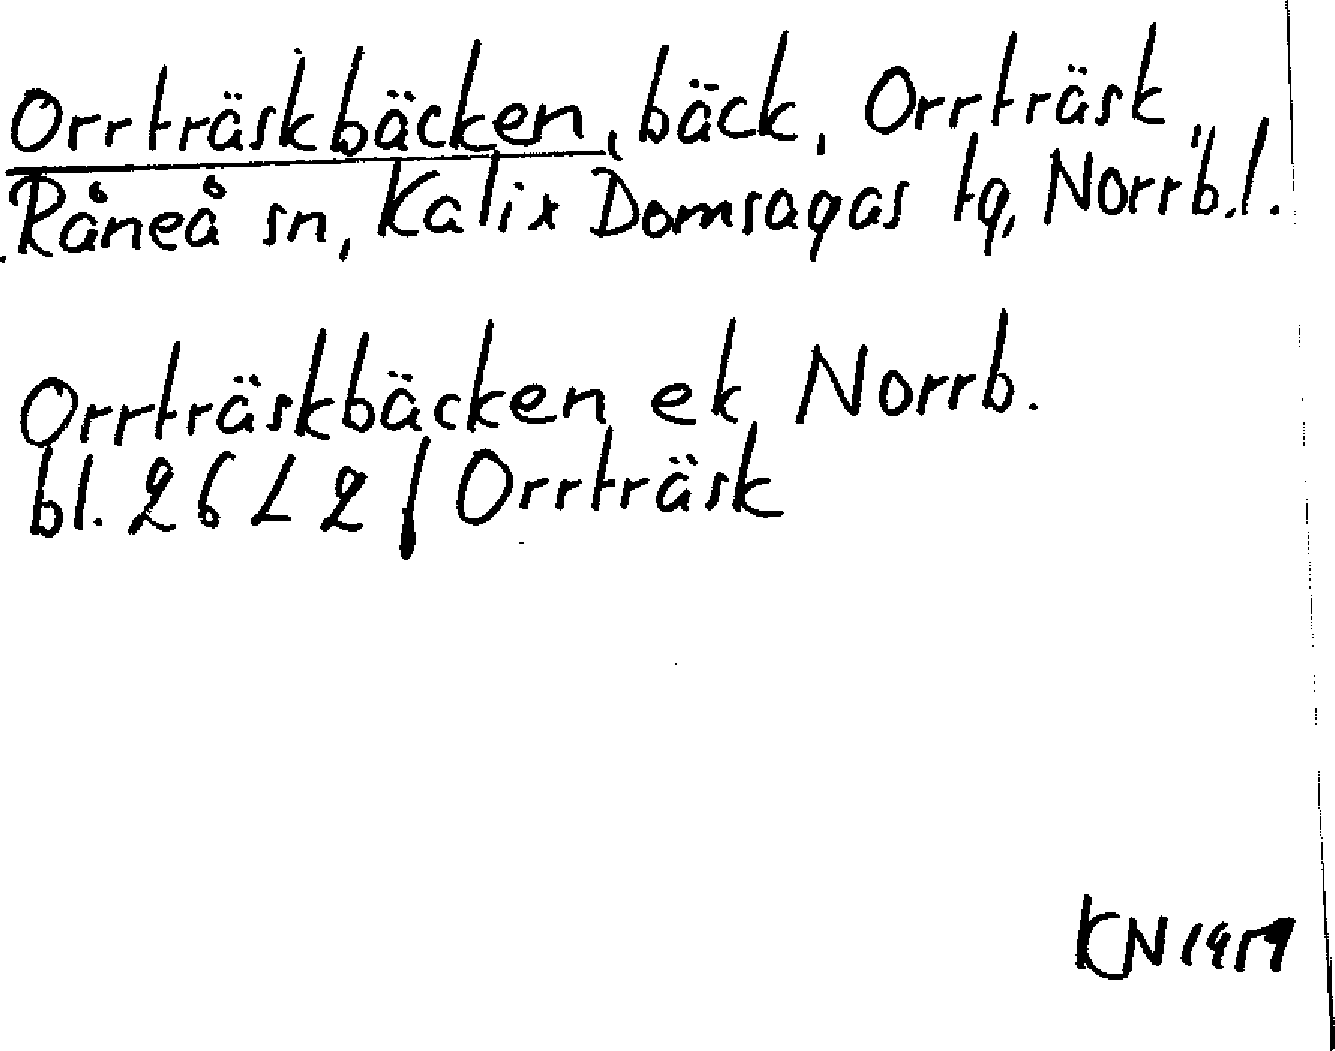 Orrträskbäcken, bäck, Orrträsk,
Råneå sn, Kalix Domsagas tg, Norrb. l.
Orrträskbäcken ek Norrb.
bl. 26 L 2 f Orrträsk
KN